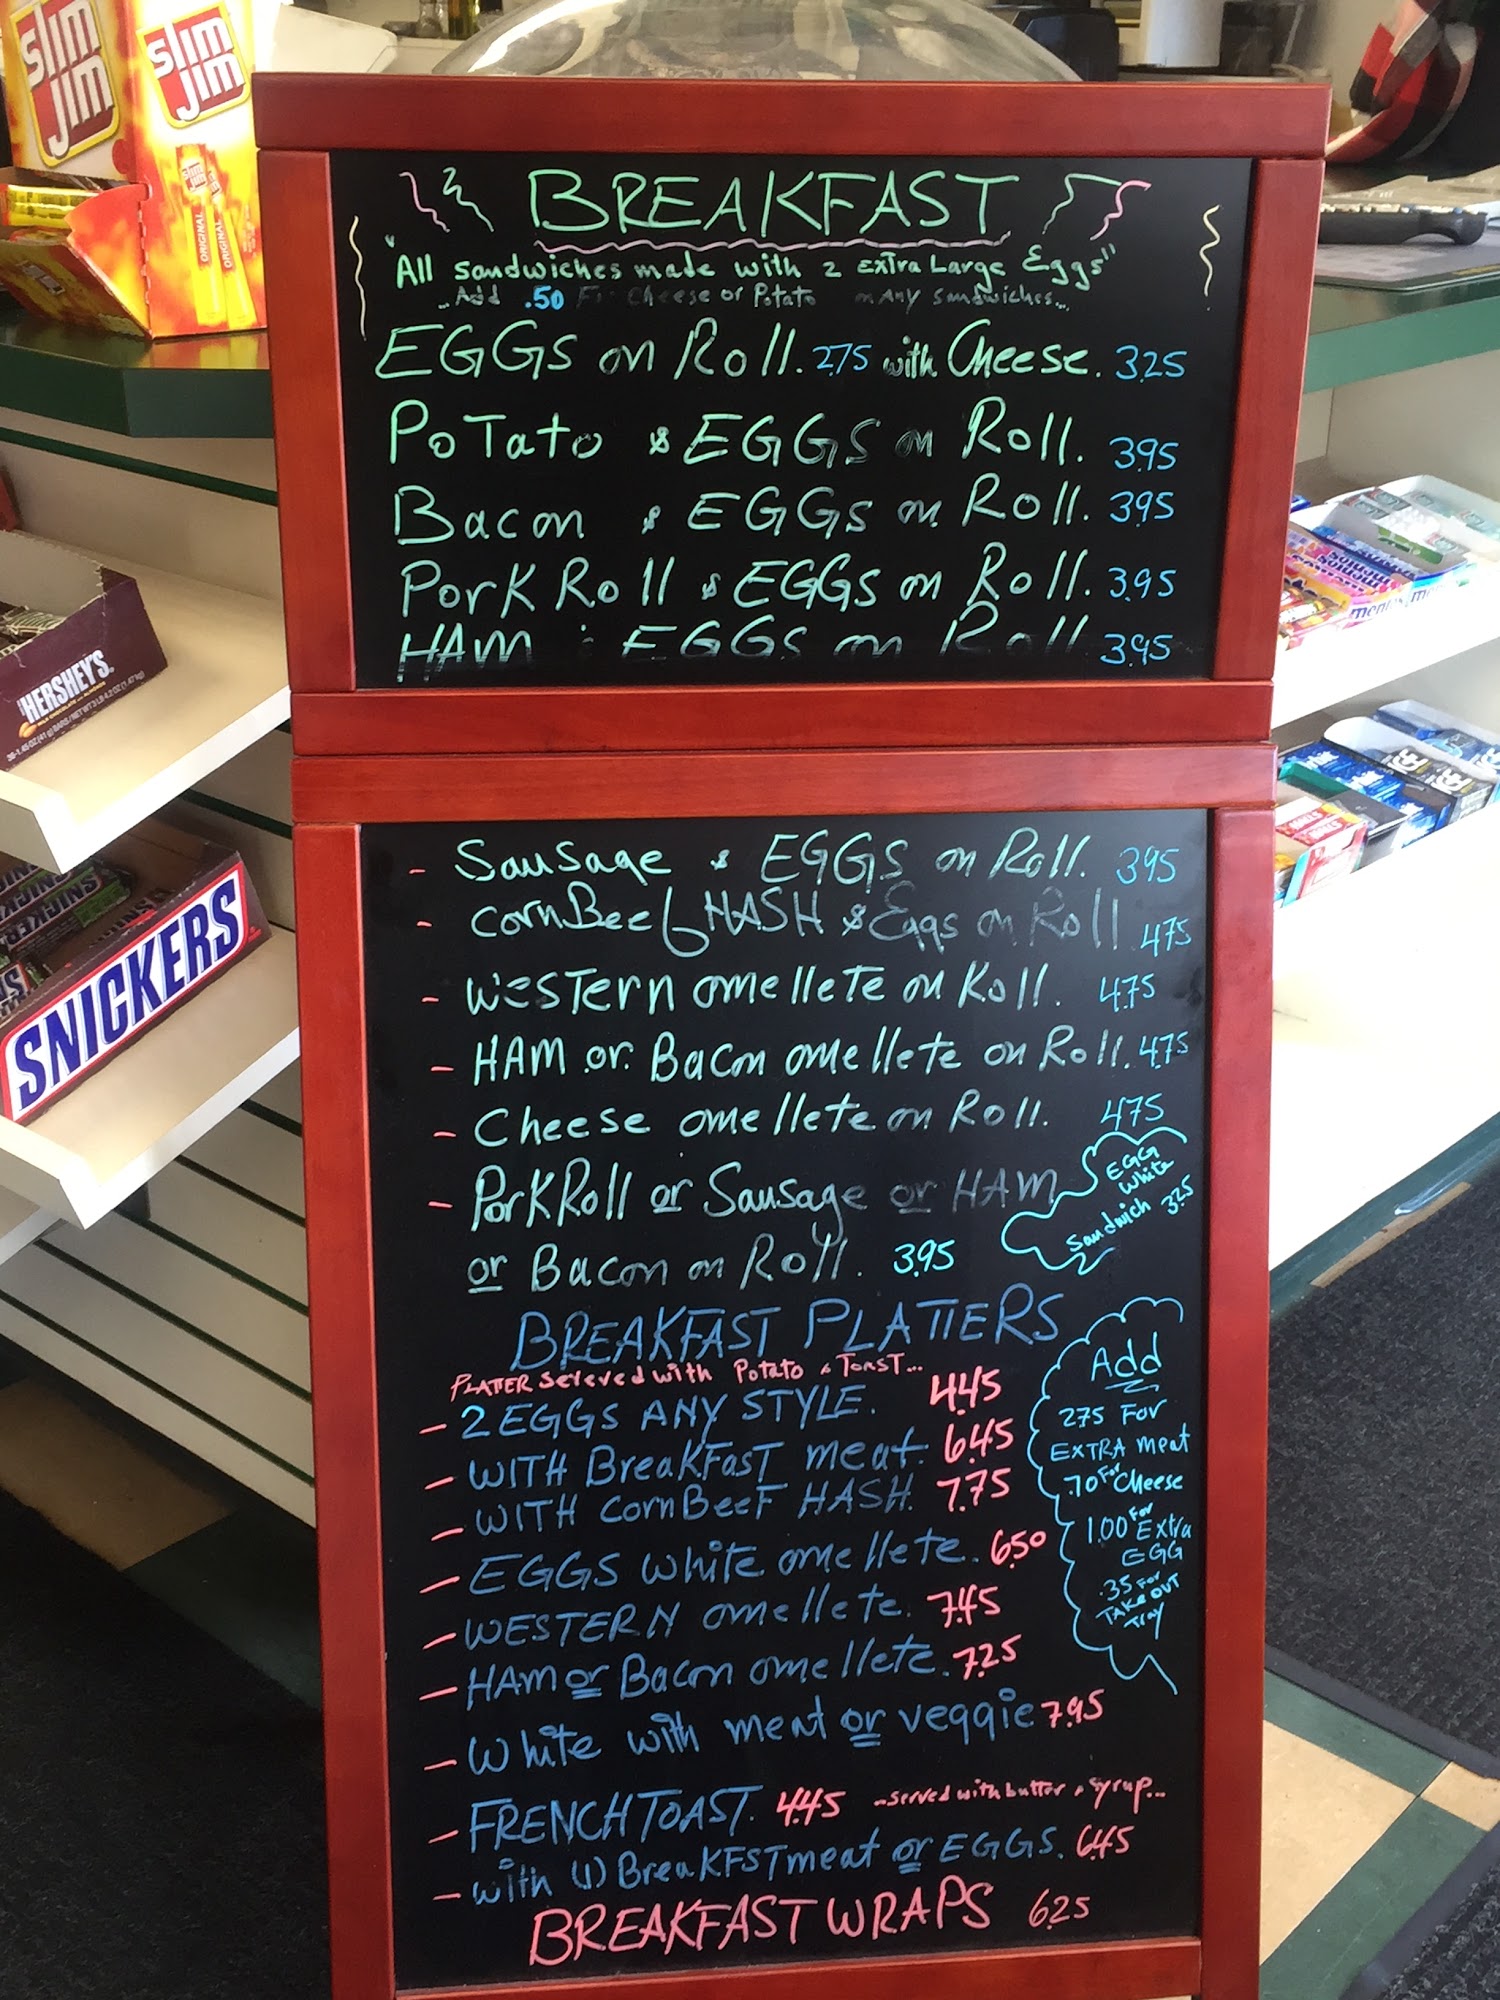 BREAKFAST
"All sandwiches made with 2 Extra Large Eggs"
..Add .50 For Cheese or Potato on Any Sandwiches...
EGGS on Roll. 2.75 with Cheese. 3.25
Potato & EGGS on Roll. 3.95
Bacon & EGGS on Roll. 3.95
Pork Roll & EGGS on Roll. 3.95
HAM & EGGS on Roll 3.95
- Sausage & EGGS on Roll. 3.95
- corn Beef HASH & Eggs on Roll 4.75
- Western omellete on Roll. 4.75
- HAM or Bacon omellete on Roll. 4.75
- Cheese omellete on Roll. 4.75
- Pork Roll or Sausage or HAM
or Bacon on Roll. 3.95
EGG
White
Sandwich 3.25
BREAKFAST PLATTERS
PLATTER serever with Potato & TOAST...
- 2 EGGS ANY STYLE. 4.45
- WITH BreaKFasT meat. 6.45
- WITH corn BeeF HASH. 7.75
- EGGS white omellete. 6.50
- WESTERN omellete. 7.45
- HAM or Bacon omellete. 7.25
- White with meat or veggie 7.95
- FRENCH TOAST. 4.45 -served with butter & syrup...
- with (1) BreaKFST meat or EGGS. 6.45
Add
2.75 For
EXTRA meat
.70 For Cheese
1.00 For Extra
EGG
.35 For
TAKE OUT
Tray
BREAKFAST WRAPS 6.25
slim jim
slim jim
slim jim
ORIGINAL
ORIGINAL
HERSHEY'S
MILK CHOCOLATE WITH ALMONDS
SNICKERS
SNICKERS
mentos